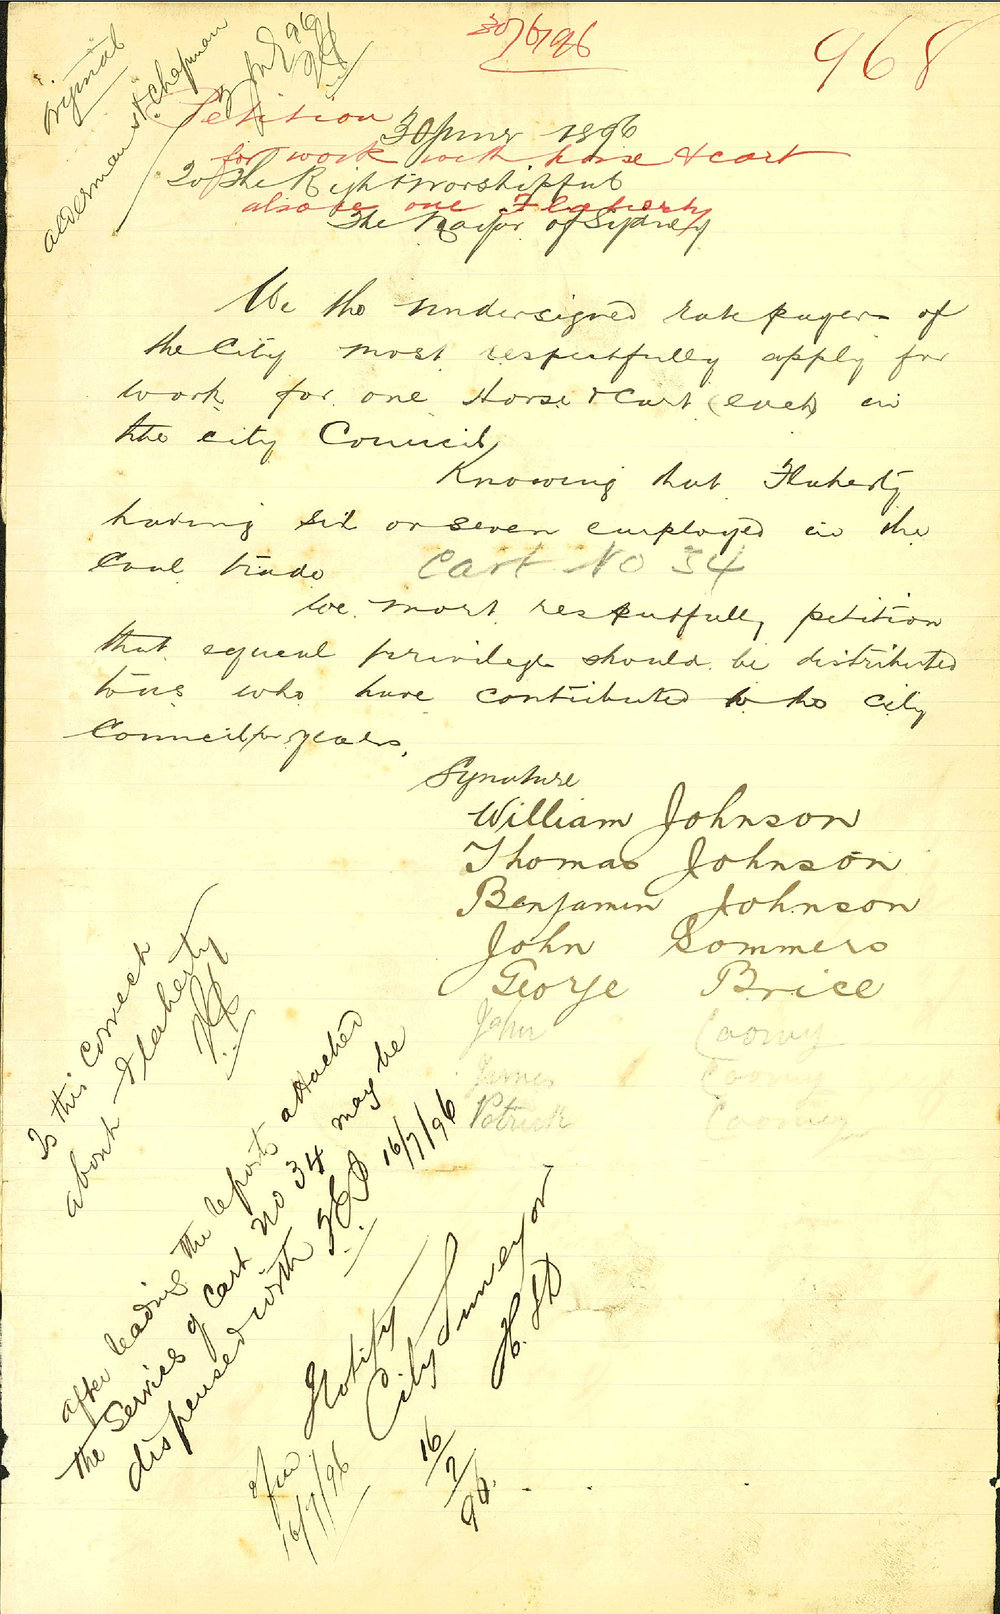 30/6/96
968
Original
Alderman Chapman
Petition
30 June 1896
for work with horse & cart
To The Right Worshipful
also re one Flaherty
The Mayor of Sydney
We the undersigned Ratepayers of
the City most respectfully apply for
work for one Horse & Cart (each) in
the city Council
Knowing that Flaherty
having six or seven employed in the
Coal trade
Cart No 34
We most respectfully petition
that equeal privilege should be distributed
to us who have contributed to the city
Council for years.
Synature
William Johnson
Thomas Johnson
Benjamin Johnson
John Sommers
George Brice
John
James
Patrick
Is this correct
about Flaherty
after reading the reports attached
the Services of Cart No 34 may be
dispensed with 16/7/96
Notify
City Surveyor
16/7/96
16/7/96.